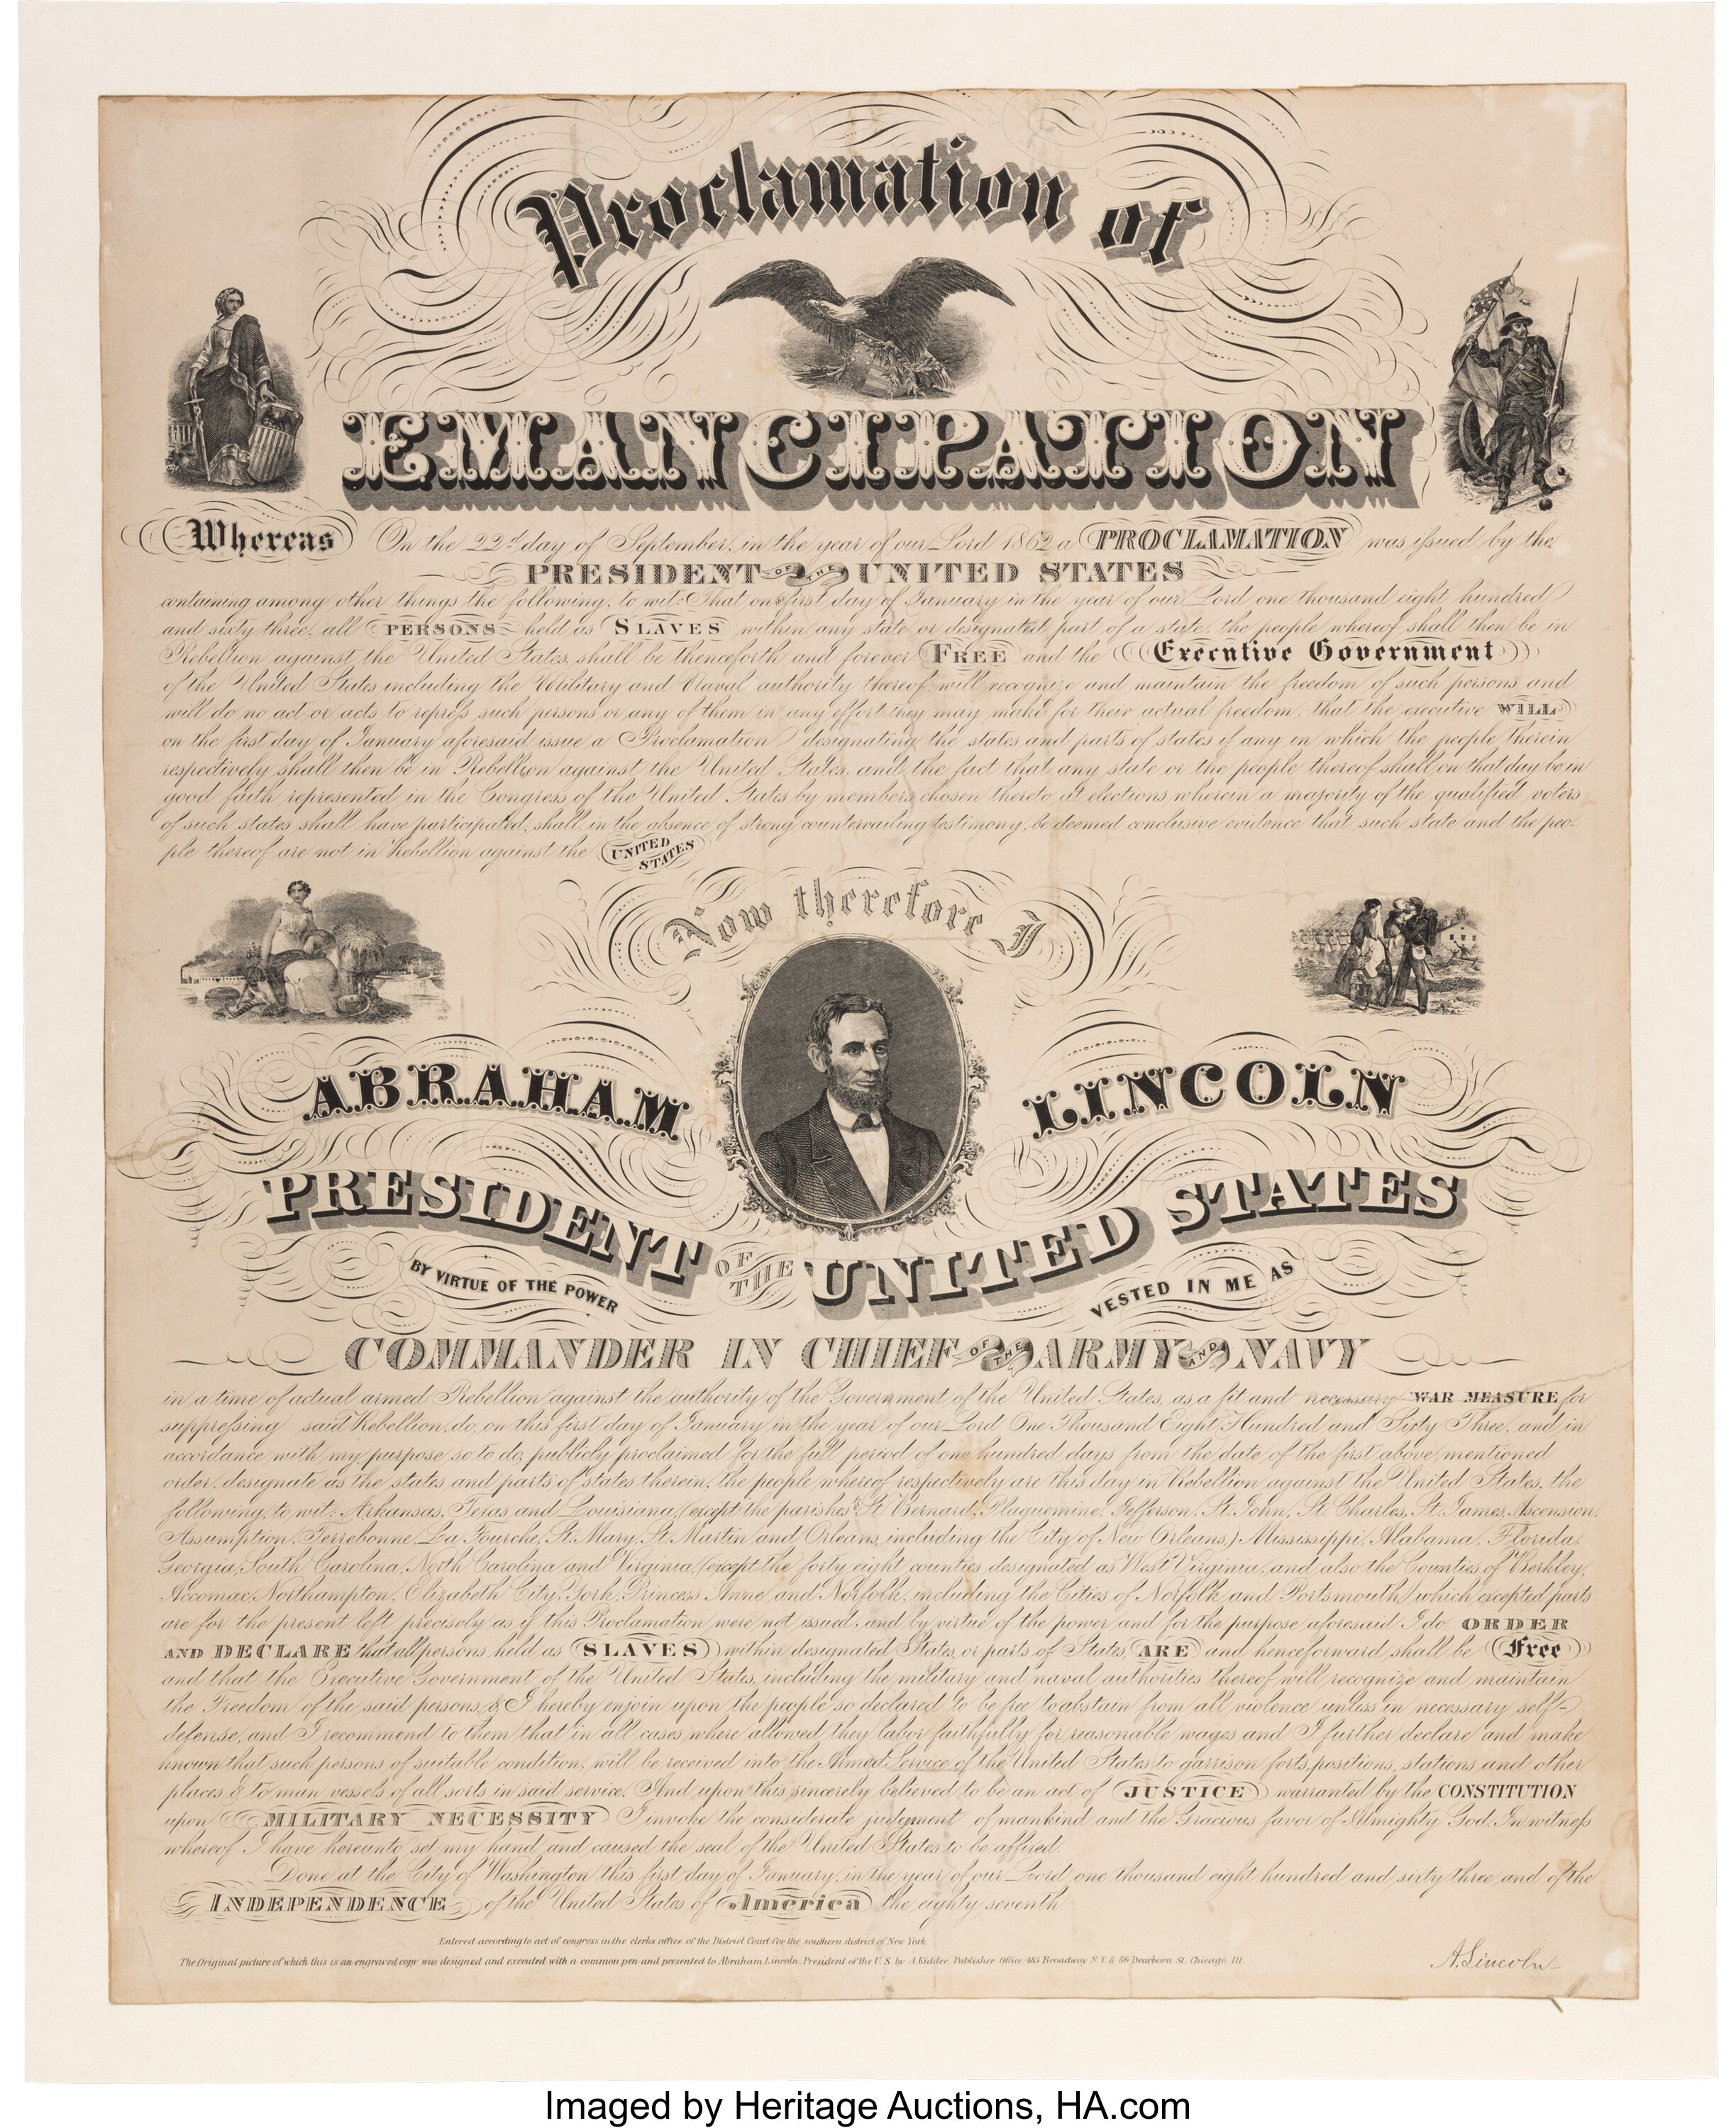 Proclamation of
EMANCIPATION
Whereas On the 22d day of September, in the year of our Lord 1862 a PROCLAMATION was issued by the
PRESIDENT OF THE UNITED STATES
containing among other things the following, to wit: That on first day of January in the year of our Lord one thousand eight hundred
and sixty three, all PERSONS held as SLAVES within any state or designated part of a state, the people whereof shall then be in
Rebellion against the United States, shall be thenceforth and forever FREE and the Executive Government
of the United States including the Military and Naval authority thereof, will recognize and maintain the freedom of such persons and
will do no act or acts to repress such persons or any of them in any effort they may make for their actual freedom, that the executive WILL
on the first day of January aforesaid issue a Proclamation designating the states and parts of states if any in which the people therein
respectively shall then be in Rebellion against the United States, and the fact that any state or the people thereof shall on that day be in
good faith represented in the Congress of the United States by members chosen thereto at elections wherein a majority of the qualified voters
of such states shall have participated, shall, in the absence of strong countervailing testimony, be deemed conclusive evidence that such state and the peo-
ple thereof are not in Rebellion against the UNITED STATES
Now therefore I
ABRAHAM LINCOLN
PRESIDENT OF THE UNITED STATES
BY VIRTUE OF THE POWER VESTED IN ME AS
COMMANDER IN CHIEF OF THE ARMY AND NAVY
in a time of actual armed Rebellion against the authority of the Government of the United States, as a fit and necessary WAR MEASURE for
suppressing said Rebellion, do, on this first day of January in the year of our Lord One Thousand Eight Hundred and Sixty Three, and in
accordance with my purpose so to do, publicly proclaimed for the full period of one hundred days from the date of the first above mentioned
order, designate as the states and parts of states therein, the people whereof respectively are this day in Rebellion against the United States, the
following, to wit: Arkansas, Texas and Louisiana, (except the parishes of St. Bernard, Plaquemine, Jefferson, St. John, St. Charles, St. James, Ascension,
Assumption, Terrebonne, La Fourche, St. Mary, St. Martin and Orleans, including the City of New Orleans,) Mississippi, Alabama, Florida,
Georgia, South Carolina, North Carolina and Virginia, (except the forty eight counties designated as West Virginia, and also the Counties of Berkley,
Accomac, Northampton, Elizabeth City, York, Princess Anne and Norfolk, including the Cities of Norfolk and Portsmouth) which excepted parts
are for the present left precisely as if this Proclamation were not issued, and by virtue of the power and for the purpose aforesaid I do ORDER
AND DECLARE that all persons held as SLAVES within designated States, or parts of States, ARE and henceforward shall be Free
and that the Executive Government of the United States, including the military and naval authorities thereof will recognize and maintain
the Freedom of the said persons, & I hereby enjoin upon the people so declared to be free to abstain from all violence unless in necessary self-
defense, and I recommend to them that in all cases where allowed they labor faithfully for reasonable wages and I further declare and make
known that such persons of suitable condition, will be received into the Armed Service of the United States to garrison forts, positions, stations, and other
places & to man vessels of all sorts in said service. And upon this sincerely believed to be an act of JUSTICE warranted by the CONSTITUTION
upon MILITARY NECESSITY I invoke the considerate judgment of mankind and the Gracious favor of Almighty God. In witness
whereof I have hereunto set my hand and caused the seal of the United States to be affixed.
Done at the City of Washington this first day of January, in the year of our Lord one thousand eight hundred and sixty three and of the
INDEPENDENCE of the United States of America the eighty seventh
Entered according to act of congress in the clerks office of the District Court for the southern district of New York.
The Original picture of which this is an engraved copy was designed and executed with a common pen and presented to Abraham Lincoln, President of the U.S. by A. Kidder, Publisher Office 483 Broadway N.Y. & 86 Dearborn St. Chicago, Ill.
A. Lincoln
Imaged by Heritage Auctions, HA.com